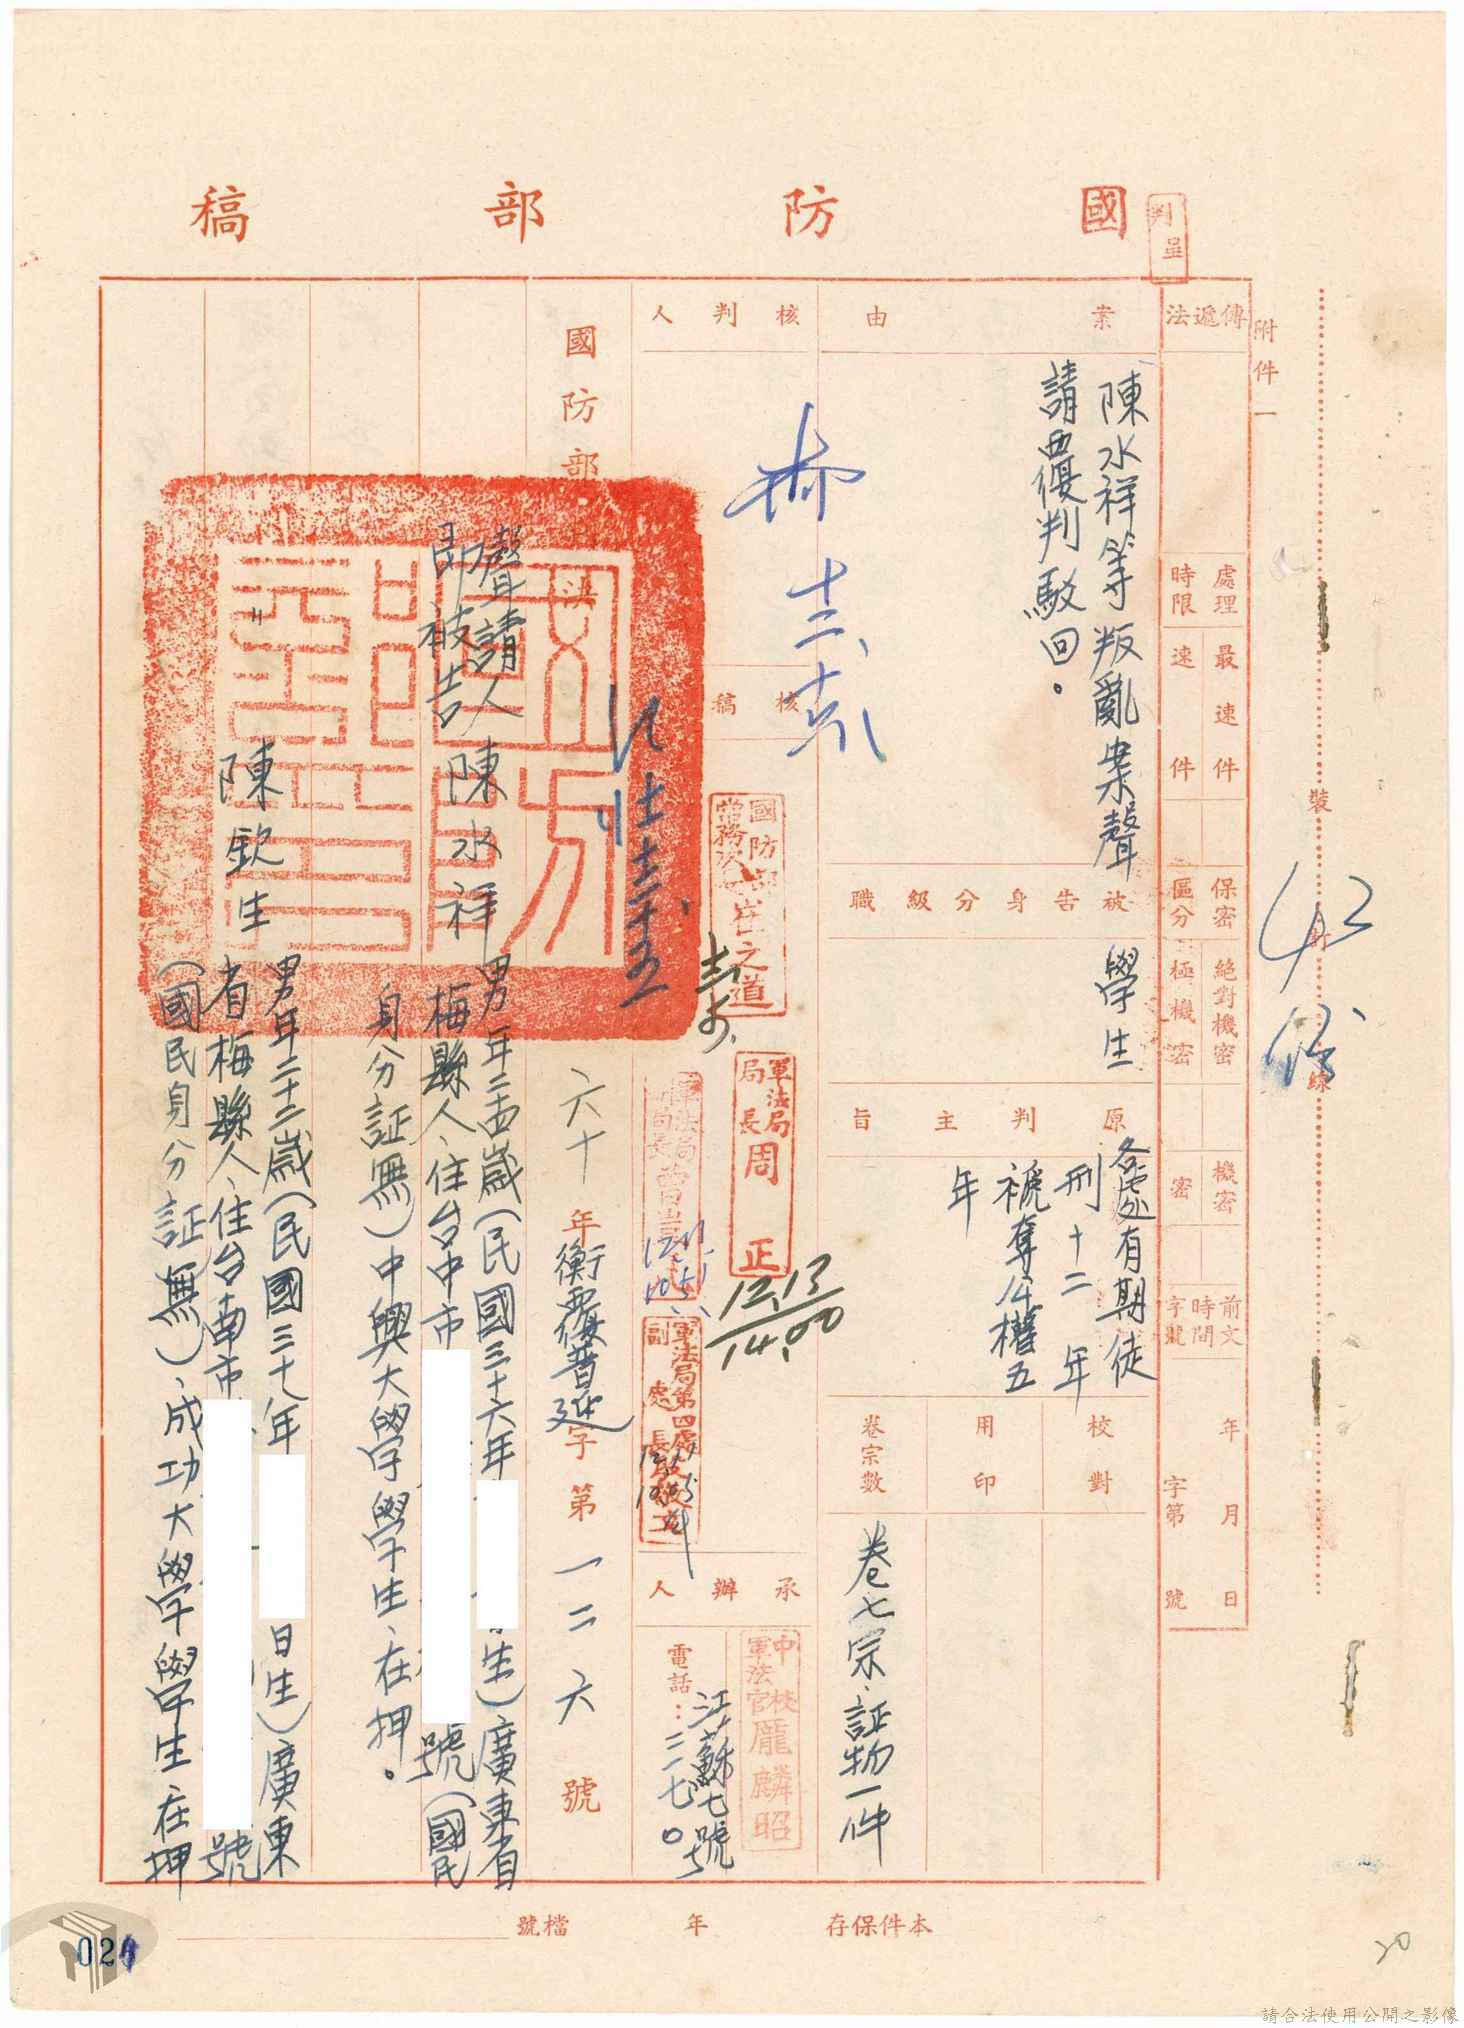 國防部稿
判呈
附件一
傳遞法
處理時限
最速件
速件
保密區分
絕對機密
極機密
機密
密
前文時間字號
年月日
字第號
裝訂線
案由
陳水祥等叛亂案聲
請覆判駁回。
被告身分級職
學生
原判主旨
各處有期徒
刑十二年
褫奪公權五
年
校對
用印
卷宗數
卷七宗、証物一件
核判人
核稿
國防部
常務次
崔之道
軍法局
局長
周正
12.13
14.00
軍法局
副局長
軍法局第四處
副處長
承辦人
中校
軍法官
龐麟昭
江蘇七號
電話:二一七〇
國防部
六十年衡覆普延字第一二六號
聲請人
即被告
陳水祥
男年二十四歲(民國三十六年
生)廣東省
梅縣人、住台中市
號(國民
身分証無)中興大學學生、在押。
〃
陳欽生
男年二十二歲(民國三十八年
日生)廣東
省梅縣人、住台南市
號
(國民身分証無)、成功大學學生在押
本件保存
年
檔號
021
20
請合法使用公開之影像